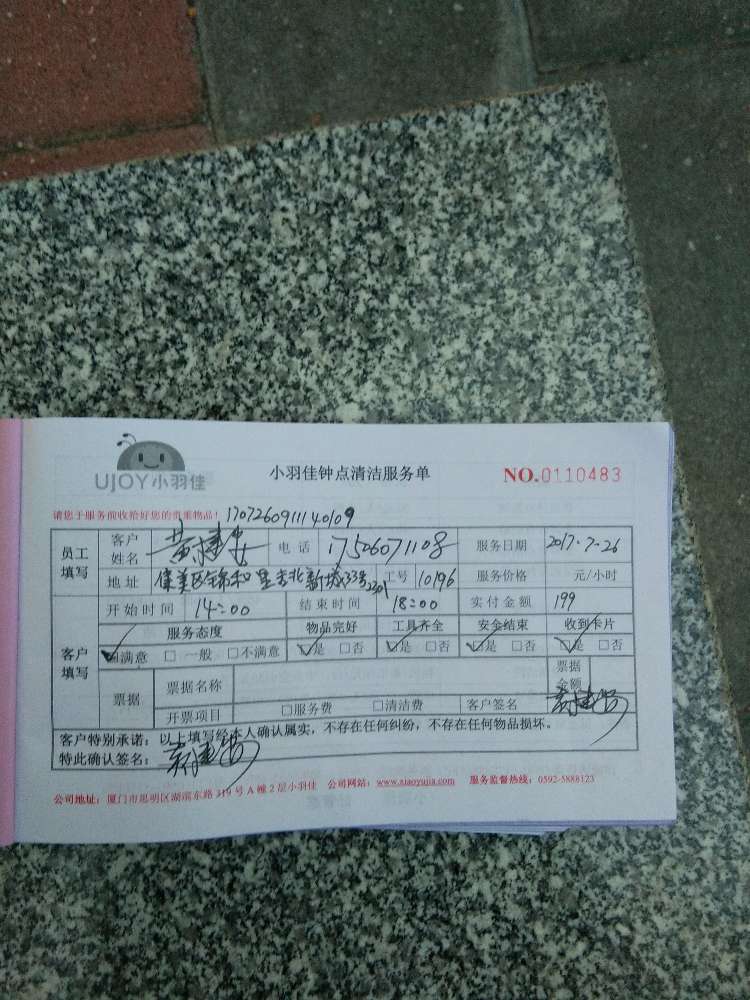 UJOY小羽佳
小羽佳钟点清洁服务单
NO.0110483
请您于服务前收拾好您的贵重物品! 1707260911140109
员工填写 客户姓名 黄建安 电话 17506071108 服务日期 2017.7-26
地址 集美区锦和里 北新城33号2301 工号 10196 服务价格 元/小时
客户填写 开始时间 14:00 结束时间 18:00 实付金额 199
服务态度 物品完好 工具齐全 安全结束 收到卡片
☑满意 □ 一般 □不满意 ☑是 □否 ☑是 □否 ☑是 □否 ☑是 □否
票据 票据名称 票据金额
开票项目 □服务费 □清洁费 客户签名
客户特别承诺:以上填写经本人确认属实,不存在任何纠纷,不存在任何物品损坏。
特此确认签名:
公司地址:厦门市思明区湖滨东路319号A幢2层小羽佳 公司网站:www.xiaoyujia.com 服务监督热线:0592-5888123